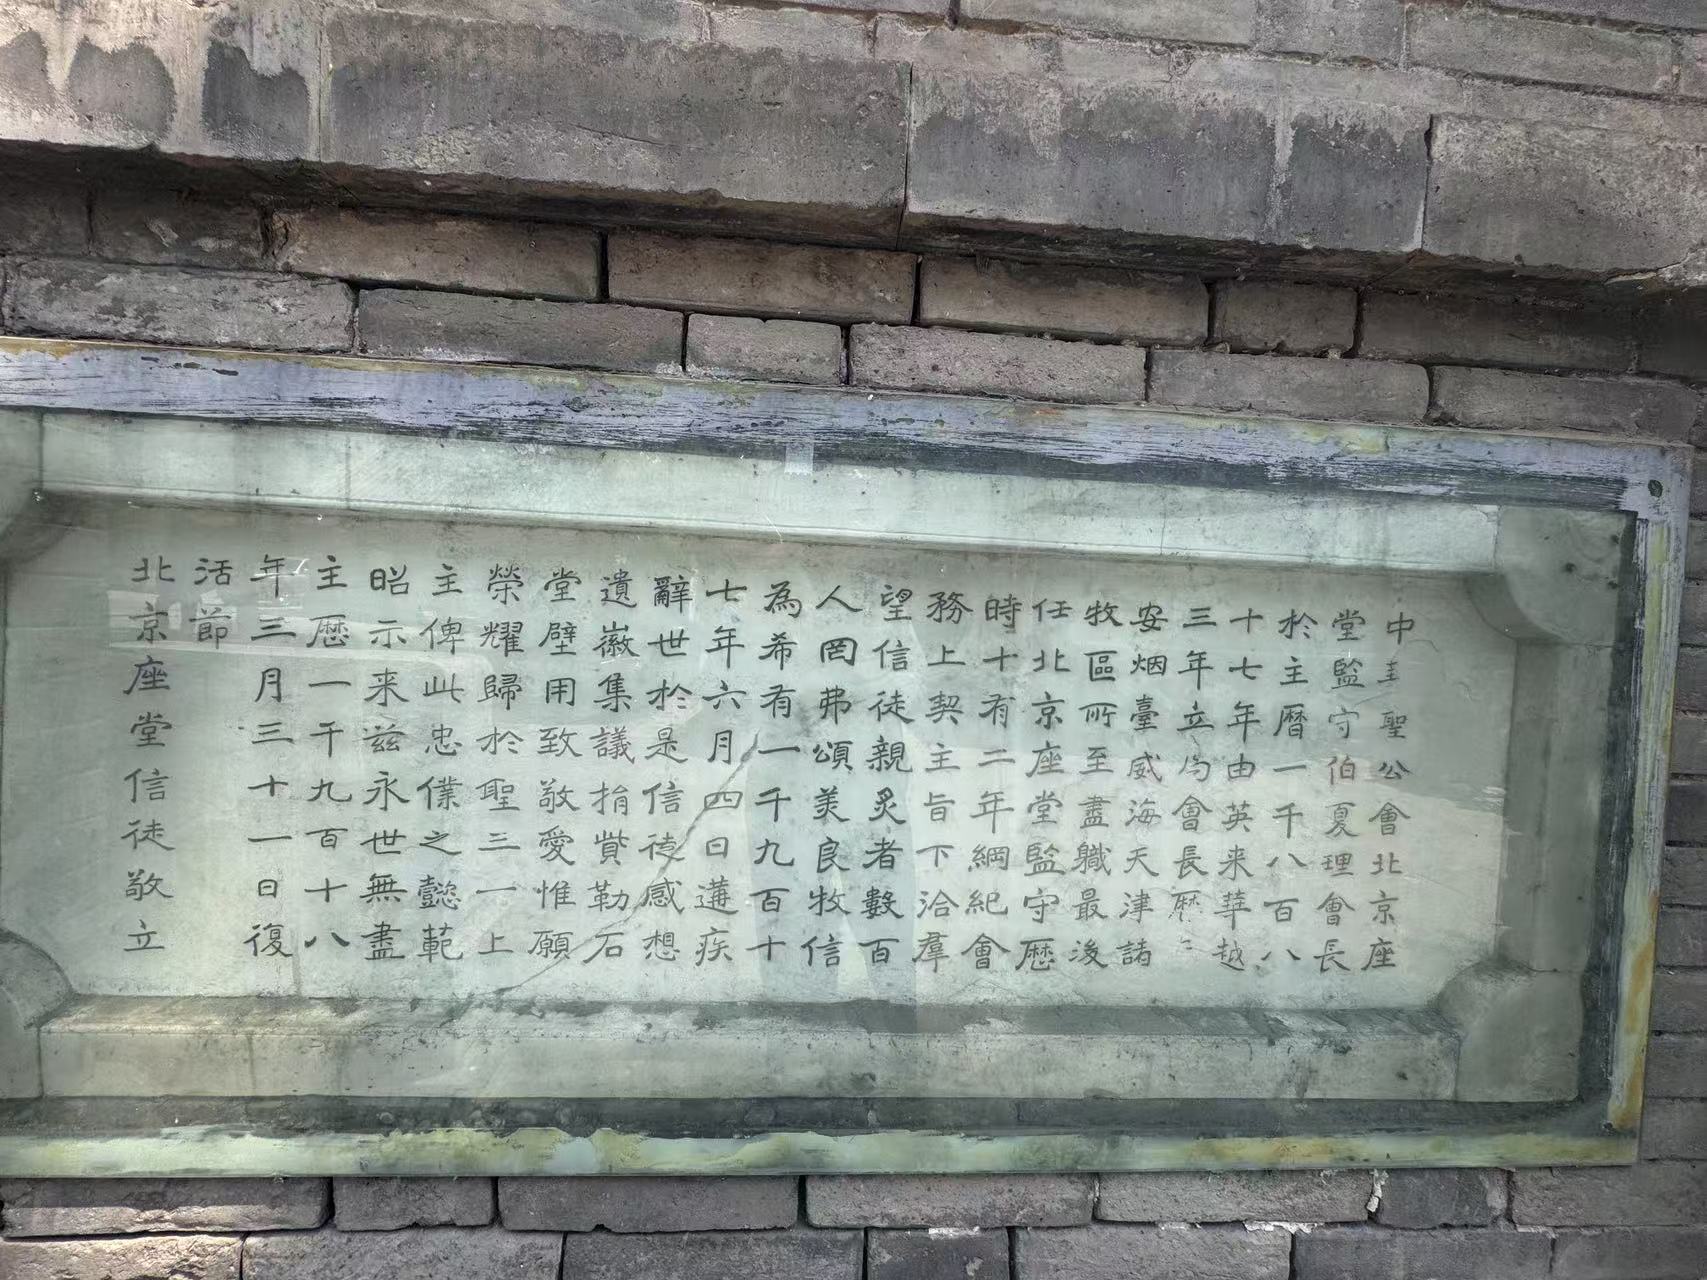 中華聖公會北京座
堂監守伯夏理會長
於主曆一千八百八
十七年由英来華越
三年立為會長歷
安烟臺威海天津諸
牧區所至盡職最後
任北京座堂監守歷
時十有二年綱紀會
務上契主旨下洽羣
望信徒親炙者數百
人罔弗頌美良牧信
為希有一千九百十
七年六月四日遘疾
辭世於是信德感想
遺徽集議捐貲勒石
堂壁用致敬愛惟願
榮耀歸於聖三一上
主俾此忠僕之懿範
昭示来兹永世無盡
主歷一千九百十八
年三月三十一日復
活節
北京座堂信徒敬立